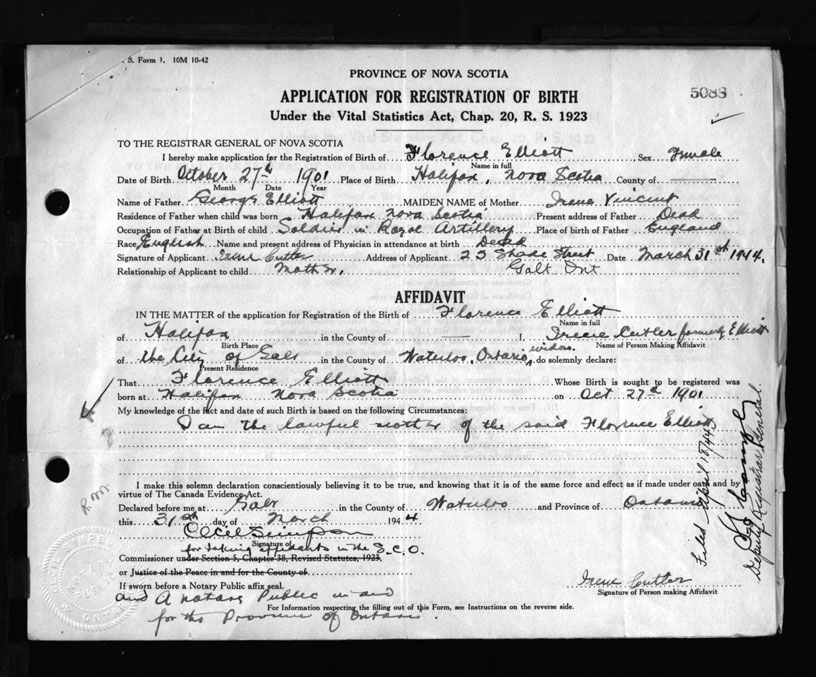 S. Form 1. 10M 10-42
PROVINCE OF NOVA SCOTIA
5088
APPLICATION FOR REGISTRATION OF BIRTH
Under the Vital Statistics Act, Chap. 20, R. S. 1923
TO THE REGISTRAR GENERAL OF NOVA SCOTIA
I hereby make application for the Registration of Birth of Florence Elliott Sex Female
Name in full
Date of Birth October 27th 1901 Place of Birth Halifax, Nova Scotia County of
Month Date Year
Name of Father George Elliott MAIDEN NAME of Mother Irene Vincent
Residence of Father when child was born Halifax Nova Scotia Present address of Father Dead
Occupation of Father at Birth of child Soldier in Royal Artillery Place of birth of Father England
Race English Name and present address of Physician in attendance at birth Dead
Signature of Applicant Irene Cutler Address of Applicant 23 Shade Street Date March 31st 1944.
Relationship of Applicant to child Mother, Galt Ont
AFFIDAVIT
IN THE MATTER of the application for Registration of the Birth of Florence Elliott
Name in full
of Halifax in the County of I, Irene Cutler formerly Elliott
Birth Place Name of Person Making Affidavit
widow
of the City of Galt in the County of Waterloo, Ontario, do solemnly declare:
Present Residence
That Florence Elliott Whose Birth is sought to be registered was
born at Halifax Nova Scotia on Oct 27th 1901
My knowledge of the fact and date of such Birth is based on the following Circumstances:
I am the lawful mother of the said Florence Elliott
I make this solemn declaration conscientiously believing it to be true, and knowing that it is of the same force and effect as if made under oath and by
virtue of The Canada Evidence Act.
Declared before me at Galt in the County of Waterloo and Province of Ontario
this 31st day of March 1944
Cecil Simpson
Signature of
for taking affidavits in the S.C.O.
Commissioner under Section 5, Chapter 38, Revised Statutes, 1923,
or Justice of the Peace in and for the County of
If sworn before a Notary Public affix seal.
and A notary Public in and
for the Province of Ontario.
Irene Cutler
Signature of Person making Affidavit
For Information respecting the filling out of this Form, see Instructions on the reverse side.
Filed April 18/44
Deputy Registrar General.